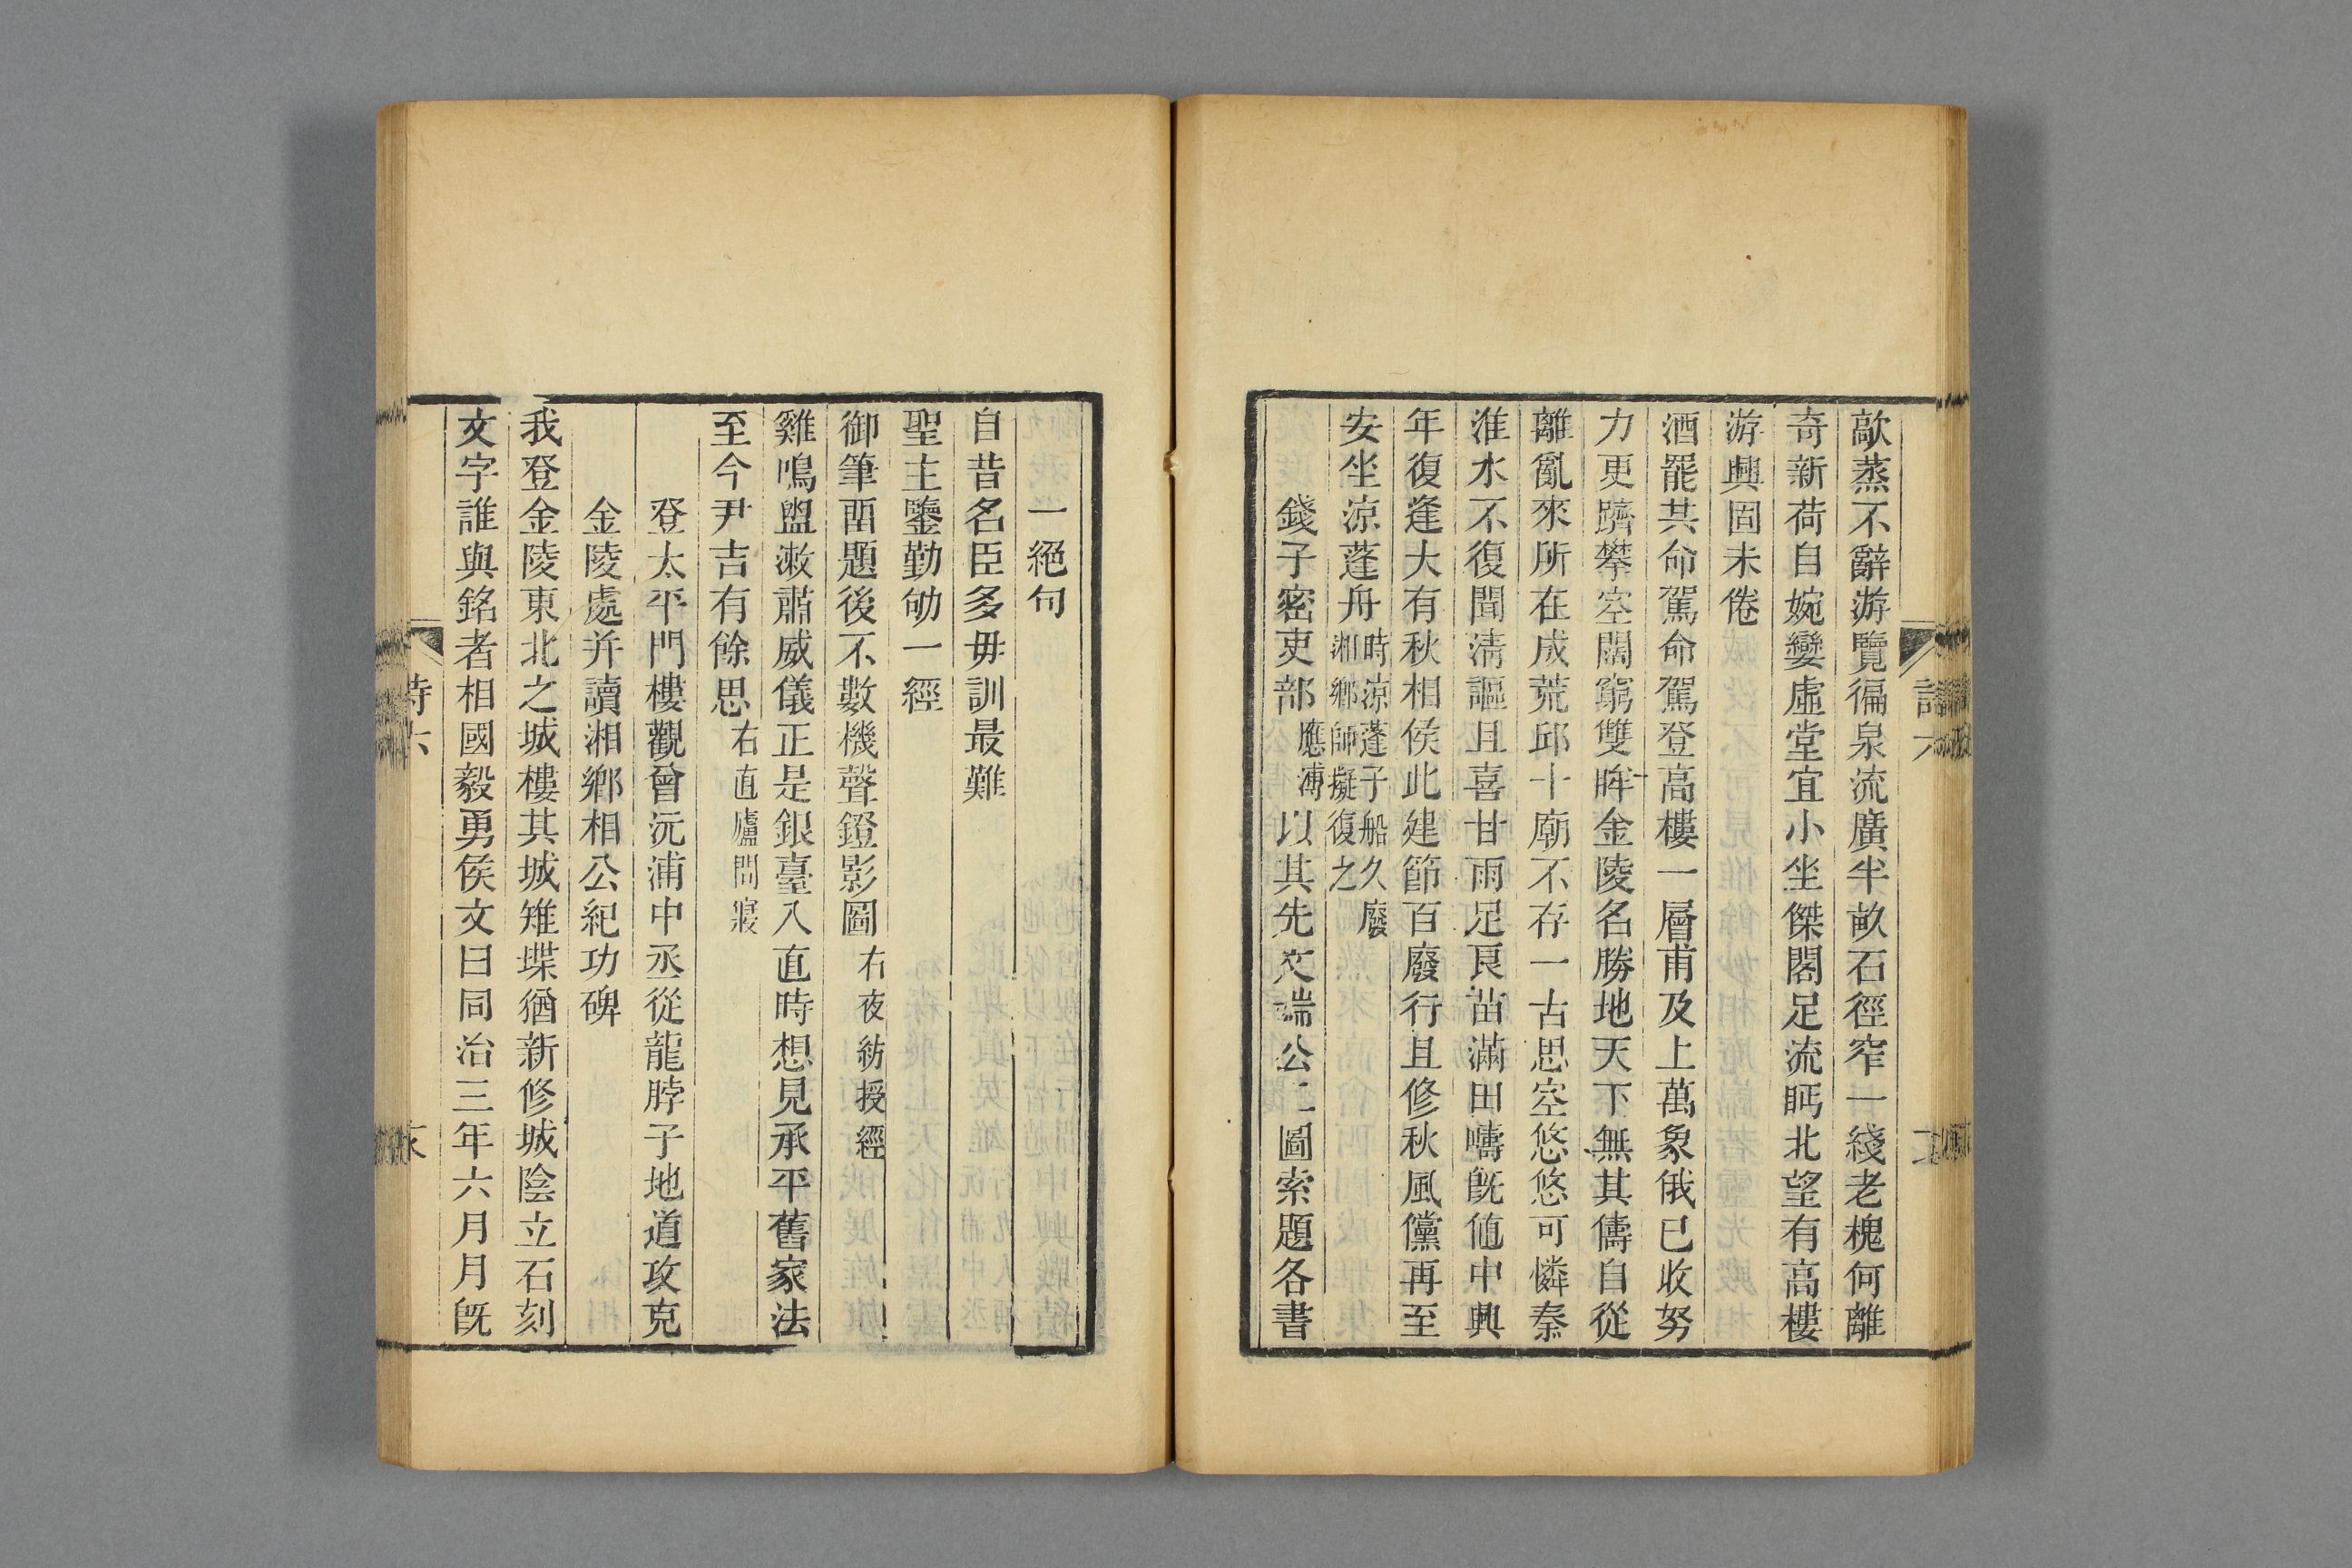 歊蒸不辭游覽徧泉流廣半畝石徑窄一綫老槐何離
奇新荷自婉孌虛堂宜小坐傑閣足流眄北望有高樓
游興固未倦
酒罷共命駕命駕登高樓一層甫及上萬象俄已收努
力更躋攀空闊窮雙眸金陵名勝地天下無其儔自從
離亂來所在成荒邱十廟不存一古思空悠悠可憐秦
淮水不復聞淸謳且喜甘雨足良苗滿田疇旣値中興
年復逢大有秋相侯此建節百廢行且修秋風儻再至
安坐涼蓬舟時涼蓬子船久廢湘鄉師擬復之
錢子密吏部應溥以其先文端公二圖索題各書
一絕句
自昔名臣多毋訓最難
聖主鑒勤劬一經
御筆畱題後不數機聲鐙影圖右夜紡授經
雞鳴盥漱肅威儀正是銀臺入直時想見承平舊家法
至今尹吉有餘思右直廬問寢
登太平門樓觀曾沅浦中丞從龍脖子地道攻克
金陵處并讀湘鄉相公紀功碑
我登金陵東北之城樓其城雉堞猶新修城陰立石刻
文字誰與銘者相國毅勇侯文曰同治三年六月月旣